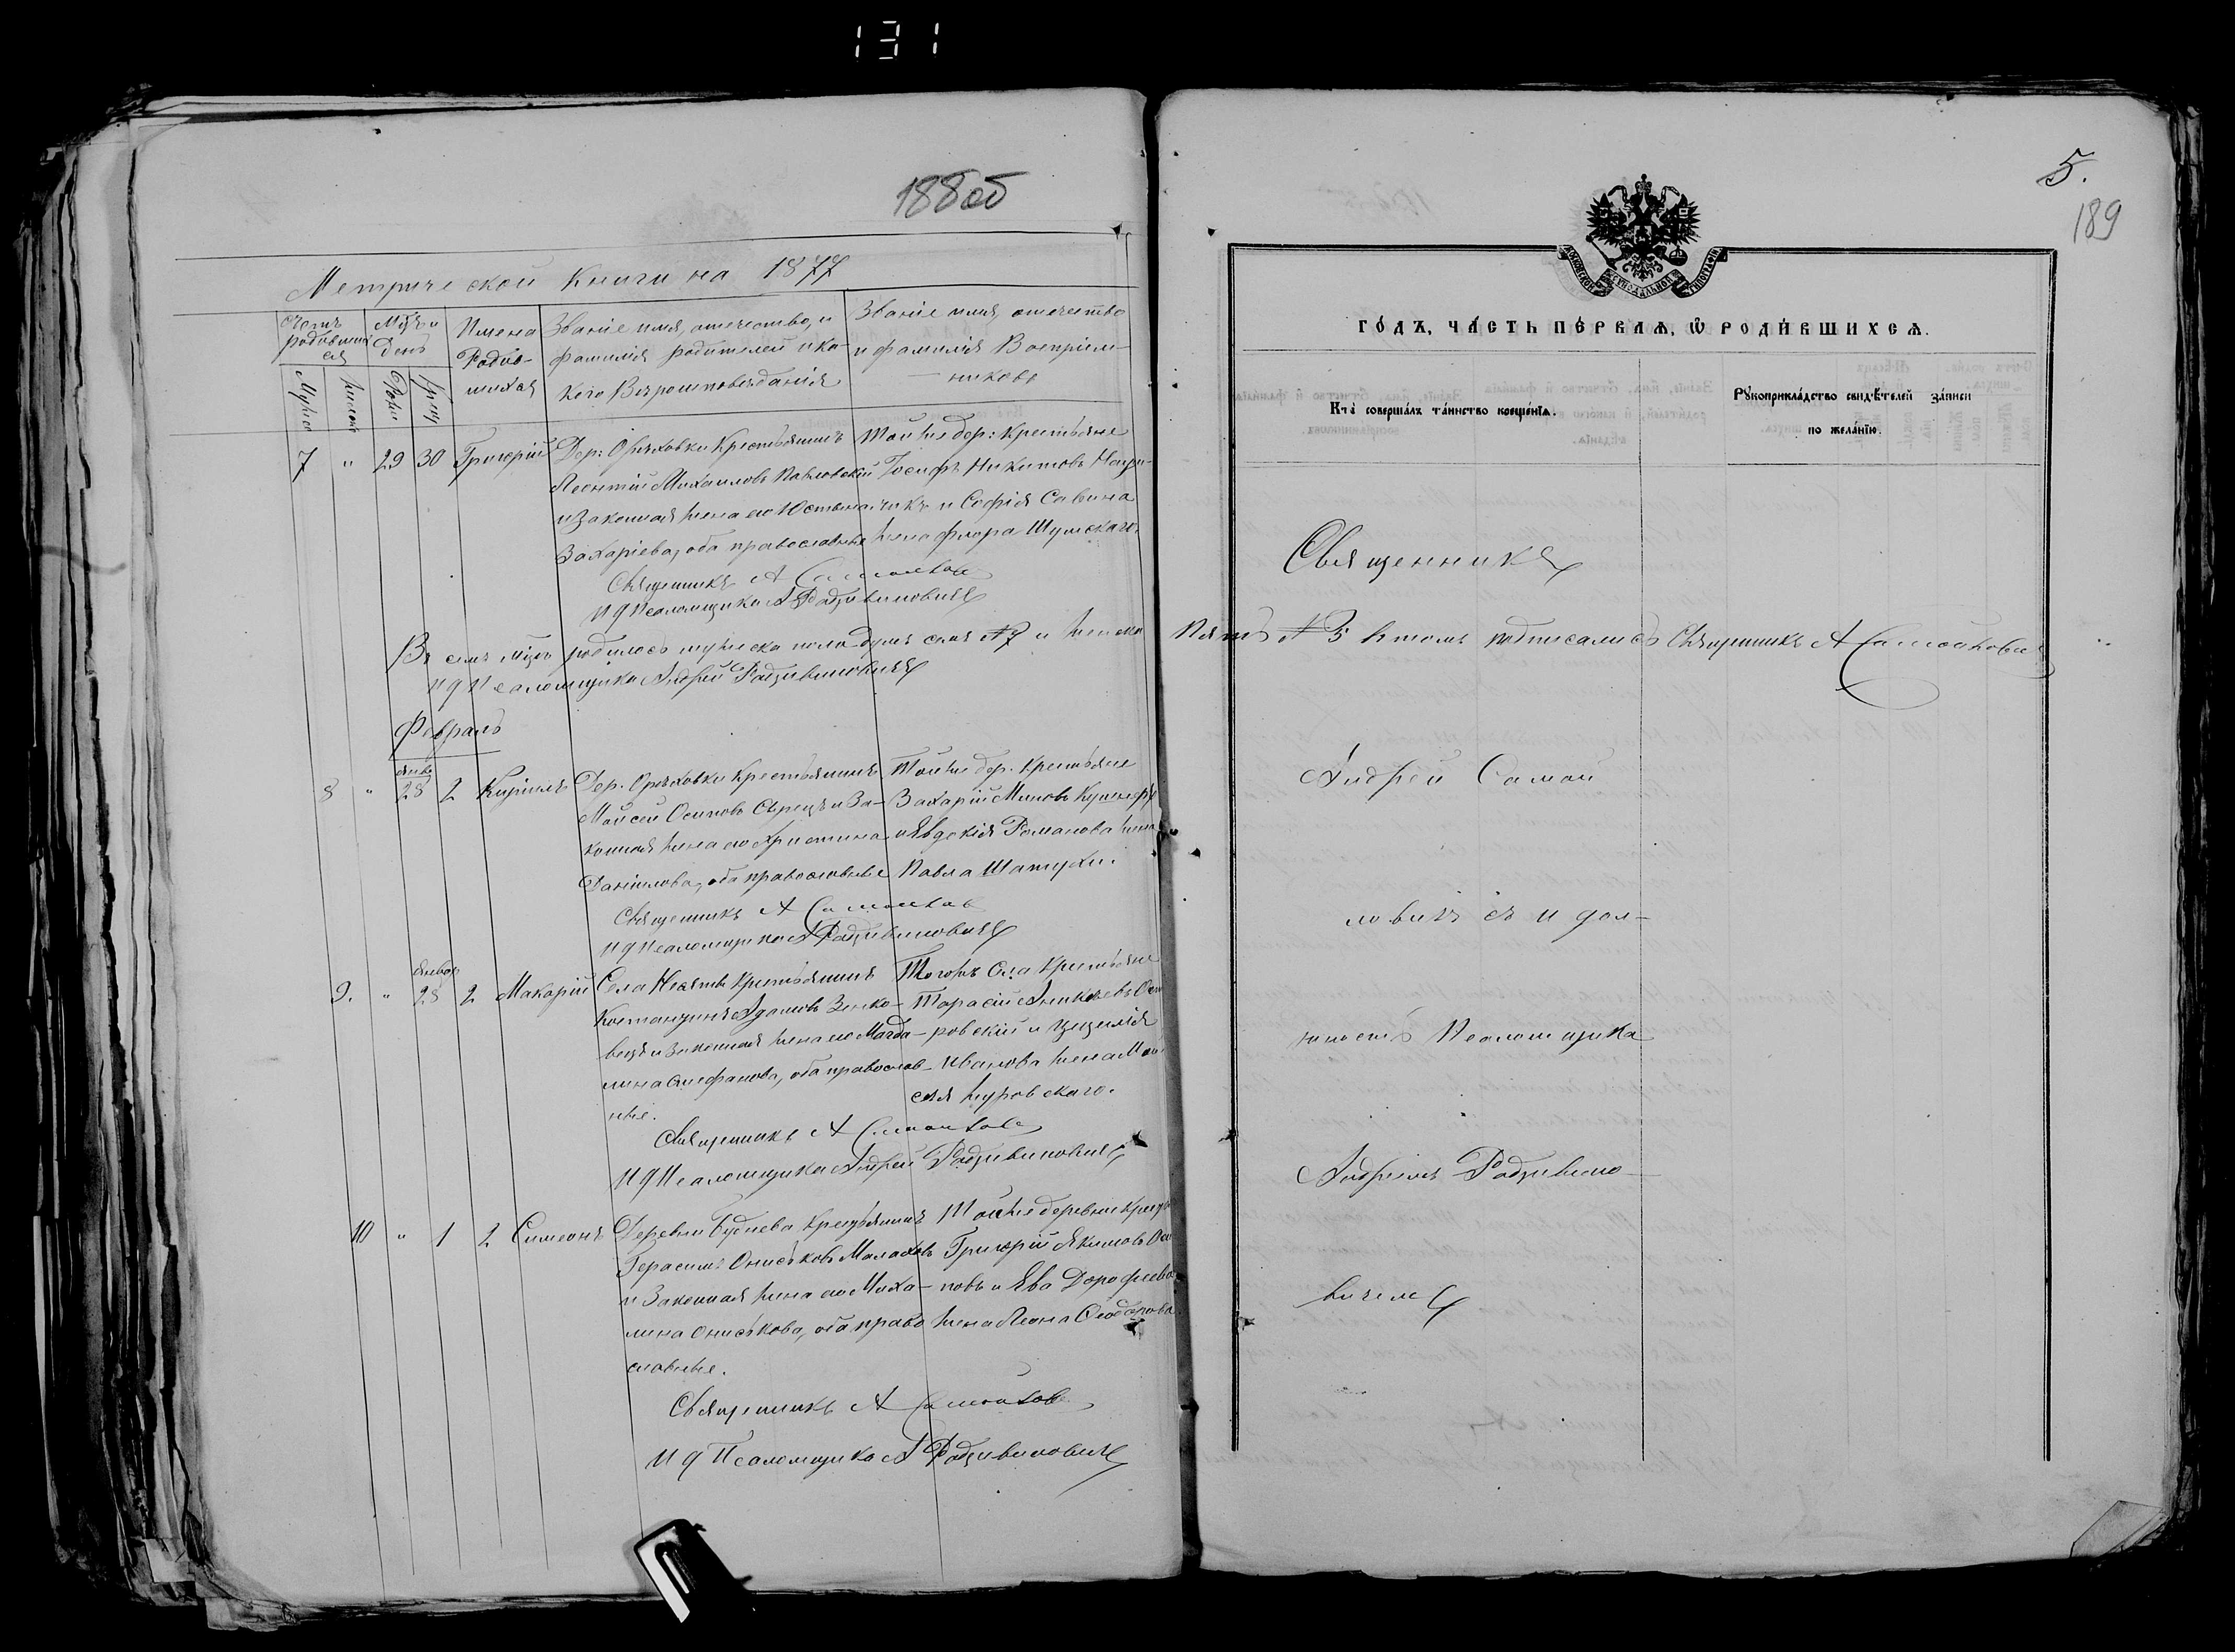 131
188об
Метрической Книги на 1877
Счетъ родившихся
Мужеска
Женска
Мѣсяцъ и День
Рожд
Крещ
Имена Родившихся
Званіе имя, отчество, и фамилія родителей и какого Вѣроисповѣданія
Званіе имя, отчество и фамилія Воспріемниковъ
7 " 29 30 Григорій
Дер: Орѣховки Крестьянинъ
Леонтій Михаиловъ Павловскій
и Законная жена его Юстына
Захаріева, оба православные
Той же дер: Крестьяне
Іосифъ Никитовъ
и Софія Савина
жена Флора Шумскаго.
Священникъ А Самойлов
И д Псаломщика А Радзивиловичъ
Въ семъ мѣсяцѣ родилось мужеска пола душъ семь № 7 и женска
И д Псаломщика Андрей Радзивиловичъ
Февраль
8 " Янв 28 2 Кирилъ
Дер. Орѣховки Крестьянинъ
Мойсей Осиповъ и За-
конная жена его Христина
Даніилова, оба православные
Той же дер. Крестьяне
Захарій
и Явдокія Романова жена
Павла Шатухи.
Священникъ А Самойлов
И д Псаломщика А Радзивиловичъ
9. " Январ 28 2 Макарій
Села Крестьянинъ
Костантинъ Адамовъ Зенко-
вецъ и Законная жена его Магда-
лина Стефанова, оба православ-
ные.
Тогожъ Села Крестьяне
Тарасій
ровскій и Цецилія
Иванова жена Мои-
сея Журовскаго.
Священникъ А Самойлов
И д Псаломщика Андрей Радзивиловичъ
10 " 1 2 Симеонъ
Деревни Буднева Крестьянинъ
Герасимъ Ониськовъ Малаховъ
и Законная жена его Миха-
лина Ониськова, оба право
славные.
Той же деревни Крестьяне
Григорій Якимовъ Оси
повъ и Ева Дорофеева
жена Леона Ѳеодорова
Священникъ А Самойлов
И д Псаломщика А Радзивиловичъ
5.
189
МОСКОВСКОЙ СѴНОДАЛЬНОЙ ТИПОГРАФІИ
ГО́ДЪ, ЧА́СТЬ ПЕ́РВАѦ, Ѡ҆ РОДИ́ВШИХСѦ.
Кто̀ соверша́лъ та́инство креще́нїѧ.
Рꙋкоприкла́дство свидѣ́телей за́писи
по жела́нїю.
Священникъ
Пять № 5 въ томъ подписались Священникъ А Самойлович
Андрей Самой
ловичъ съ И дол-
жность Псаломщика
Андреемъ Радзивило-
вичемъ